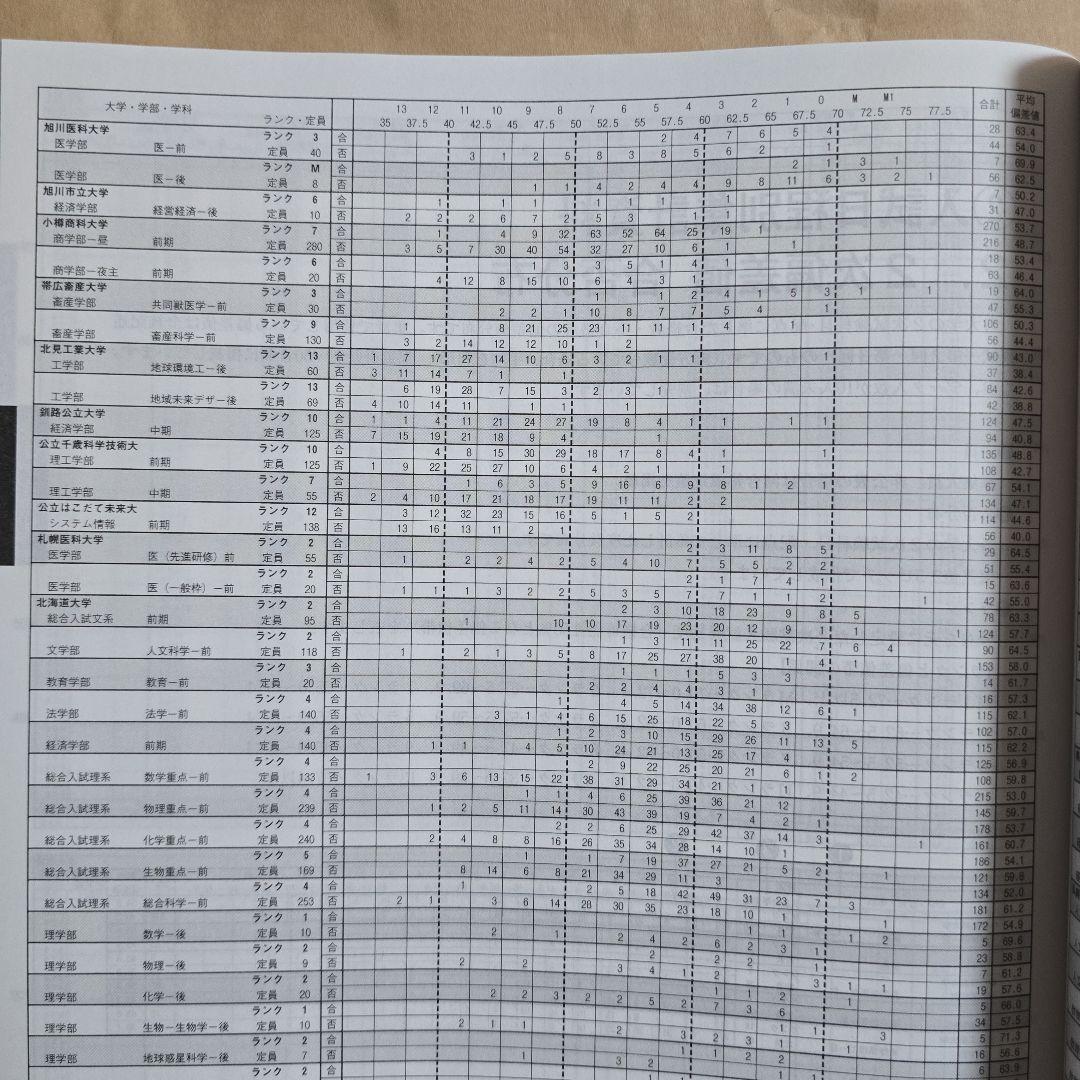 大学・学部・学科 13 12 11 10 9 8 7 6 5 4 3 2 1 0 M M1 合計 平均
ランク・定員 35 37.5 40 42.5 45 47.5 50 52.5 55 57.5 60 62.5 65 67.5 70 72.5 75 77.5 偏差値
旭川医科大学 ランク 3 合 2 4 7 6 5 4 28 63.4
医学部 医－前 定員 40 否 3 1 2 5 8 3 8 5 6 2 1 44 54.0
ランク M 合 2 1 3 1 7 69.9
医学部 医－後 定員 8 否 1 1 4 2 4 4 9 8 11 6 3 2 1 56 62.5
旭川市立大学 ランク 6 合 1 1 1 1 1 1 1 7 50.2
経済学部 経営経済－後 定員 10 否 2 2 2 6 7 2 5 3 1 1 31 47.0
小樽商科大学 ランク 7 合 1 4 9 32 63 52 64 25 19 1 270 53.7
商学部－昼 前期 定員 280 否 3 5 7 30 40 54 32 27 10 6 1 1 216 48.7
ランク 6 合 1 3 3 5 1 4 1 18 53.4
商学部－夜主 前期 定員 20 否 4 12 8 15 10 6 4 3 1 63 46.4
帯広畜産大学 ランク 3 合 1 1 2 4 1 5 3 1 1 19 64.0
畜産学部 共同獣医学－前 定員 30 否 2 2 1 10 8 7 7 5 4 1 47 55.3
ランク 9 合 1 8 21 25 23 11 11 1 4 1 106 50.3
畜産学部 畜産科学－前 定員 130 否 3 2 14 12 12 10 1 2 56 44.4
北見工業大学 ランク 13 合 1 7 17 27 14 10 6 3 2 1 1 1 90 43.0
工学部 地球環境工－後 定員 60 否 3 11 14 7 1 1 37 38.4
ランク 13 合 6 19 28 7 15 3 2 3 1 84 42.6
工学部 地域未来デザ－後 定員 69 否 4 10 14 11 1 1 1 42 38.8
釧路公立大学 ランク 10 合 1 1 4 11 21 24 27 19 8 4 1 1 1 1 124 47.5
経済学部 中期 定員 125 否 7 15 19 21 18 9 4 1 94 40.8
公立千歳科学技術大 ランク 10 合 4 8 15 30 29 18 17 8 4 1 1 135 48.8
理工学部 前期 定員 125 否 1 9 22 25 27 10 6 4 2 1 1 108 42.7
ランク 7 合 1 6 3 5 9 16 6 9 8 1 2 1 67 54.1
理工学部 中期 定員 55 否 2 4 10 17 21 18 17 19 11 11 2 2 134 47.1
公立はこだて未来大 ランク 12 合 3 12 32 23 15 16 5 1 5 2 114 44.6
システム情報 前期 定員 138 否 13 16 13 11 2 1 56 40.0
札幌医科大学 ランク 2 合 2 3 11 8 5 29 64.5
医学部 医（先進研修）前 定員 55 否 1 2 2 4 2 5 4 10 7 5 5 2 2 51 55.4
ランク 2 合 2 1 7 4 1 15 63.6
医学部 医（一般枠）－前 定員 20 否 1 1 1 3 2 2 5 3 5 7 7 1 1 2 1 42 55.0
北海道大学 ランク 2 合 2 3 10 18 23 9 8 5 78 63.3
総合入試文系 前期 定員 95 否 1 10 10 17 19 23 20 12 9 1 1 1 124 57.7
ランク 2 合 1 3 11 11 25 22 7 6 4 90 64.5
文学部 人文科学－前 定員 118 否 1 2 1 3 5 8 17 25 27 38 20 1 4 1 153 58.0
ランク 3 合 1 1 1 5 3 3 14 61.7
教育学部 教育－前 定員 20 否 2 2 4 4 3 1 16 57.3
ランク 4 合 1 4 5 14 34 38 12 6 1 115 62.1
法学部 法学－前 定員 140 否 3 1 4 6 15 25 18 22 5 3 102 57.0
ランク 4 合 1 2 3 10 15 29 26 11 13 5 115 62.2
経済学部 前期 定員 140 否 1 1 4 5 10 24 21 13 25 17 4 125 56.9
ランク 4 合 2 9 22 25 20 21 6 1 2 108 59.8
総合入試理系 数学重点－前 定員 133 否 1 3 6 13 15 22 38 31 29 34 21 1 1 215 53.0
ランク 4 合 1 1 4 6 25 39 36 21 12 145 59.7
総合入試理系 物理重点－前 定員 239 否 1 2 5 11 14 30 43 39 19 7 4 2 1 178 53.7
ランク 4 合 2 2 6 25 29 42 37 14 3 1 161 60.7
総合入試理系 化学重点－前 定員 240 否 2 4 8 8 16 26 35 34 28 14 10 1 186 54.1
ランク 5 合 1 1 7 19 37 27 21 5 2 1 121 59.8
総合入試理系 生物重点－前 定員 169 否 8 14 6 8 21 34 29 11 3 134 52.0
ランク 4 合 1 2 5 18 42 49 31 23 7 3 181 61.2
総合入試理系 総合科学－前 定員 253 否 2 1 3 6 14 28 30 35 23 18 10 1 1 172 54.9
ランク 1 合 1 1 1 2 5 69.6
理学部 数学－後 定員 10 否 2 1 2 4 2 6 2 3 1 23 58.8
ランク 2 合 2 2 2 1 7 61.2
理学部 物理－後 定員 9 否 2 2 3 4 1 2 3 1 1 19 57.6
ランク 2 合 1 1 2 1 5 66.0
理学部 化学－後 定員 20 否 2 2 3 2 2 5 2 7 3 6 34 57.5
ランク 1 合 1 1 3 5 71.3
理学部 生物－生物学－後 定員 10 否 2 1 1 2 3 2 3 1 1 16 56.6
ランク 2 合 1 1 2 2 6 63.9
理学部 地球惑星科学－後 定員 7 否 1 3 2
ランク 2 合